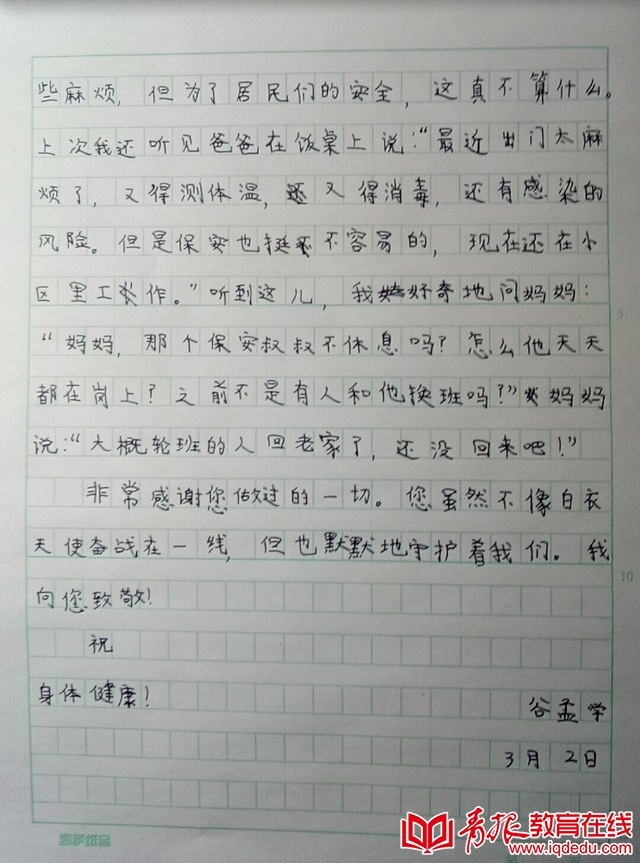 些麻烦，但为了居民们的安全，这真不算什么。
上次我还听见爸爸在饭桌上说：“最近出门太麻
烦了，又得测体温，还又得消毒，还有感染的
风险。但是保安也挺不容易的，现在还在小
区里工作。”听到这儿，我好奇地问妈妈：
“妈妈，那个保安叔叔不休息吗？怎么他天天
都在岗上？之前不是有人和他换班吗？”妈妈
说：“大概轮班的人回老家了，还没回来吧！”
非常感谢您做过的一切。您虽然不像白衣
天使奋战在一线，但也默默地守护着我们。我
向您致敬！
祝
身体健康！
谷孟学
3月2日
5
10
凯萨纸品
青报教育在线
www.iqdedu.com